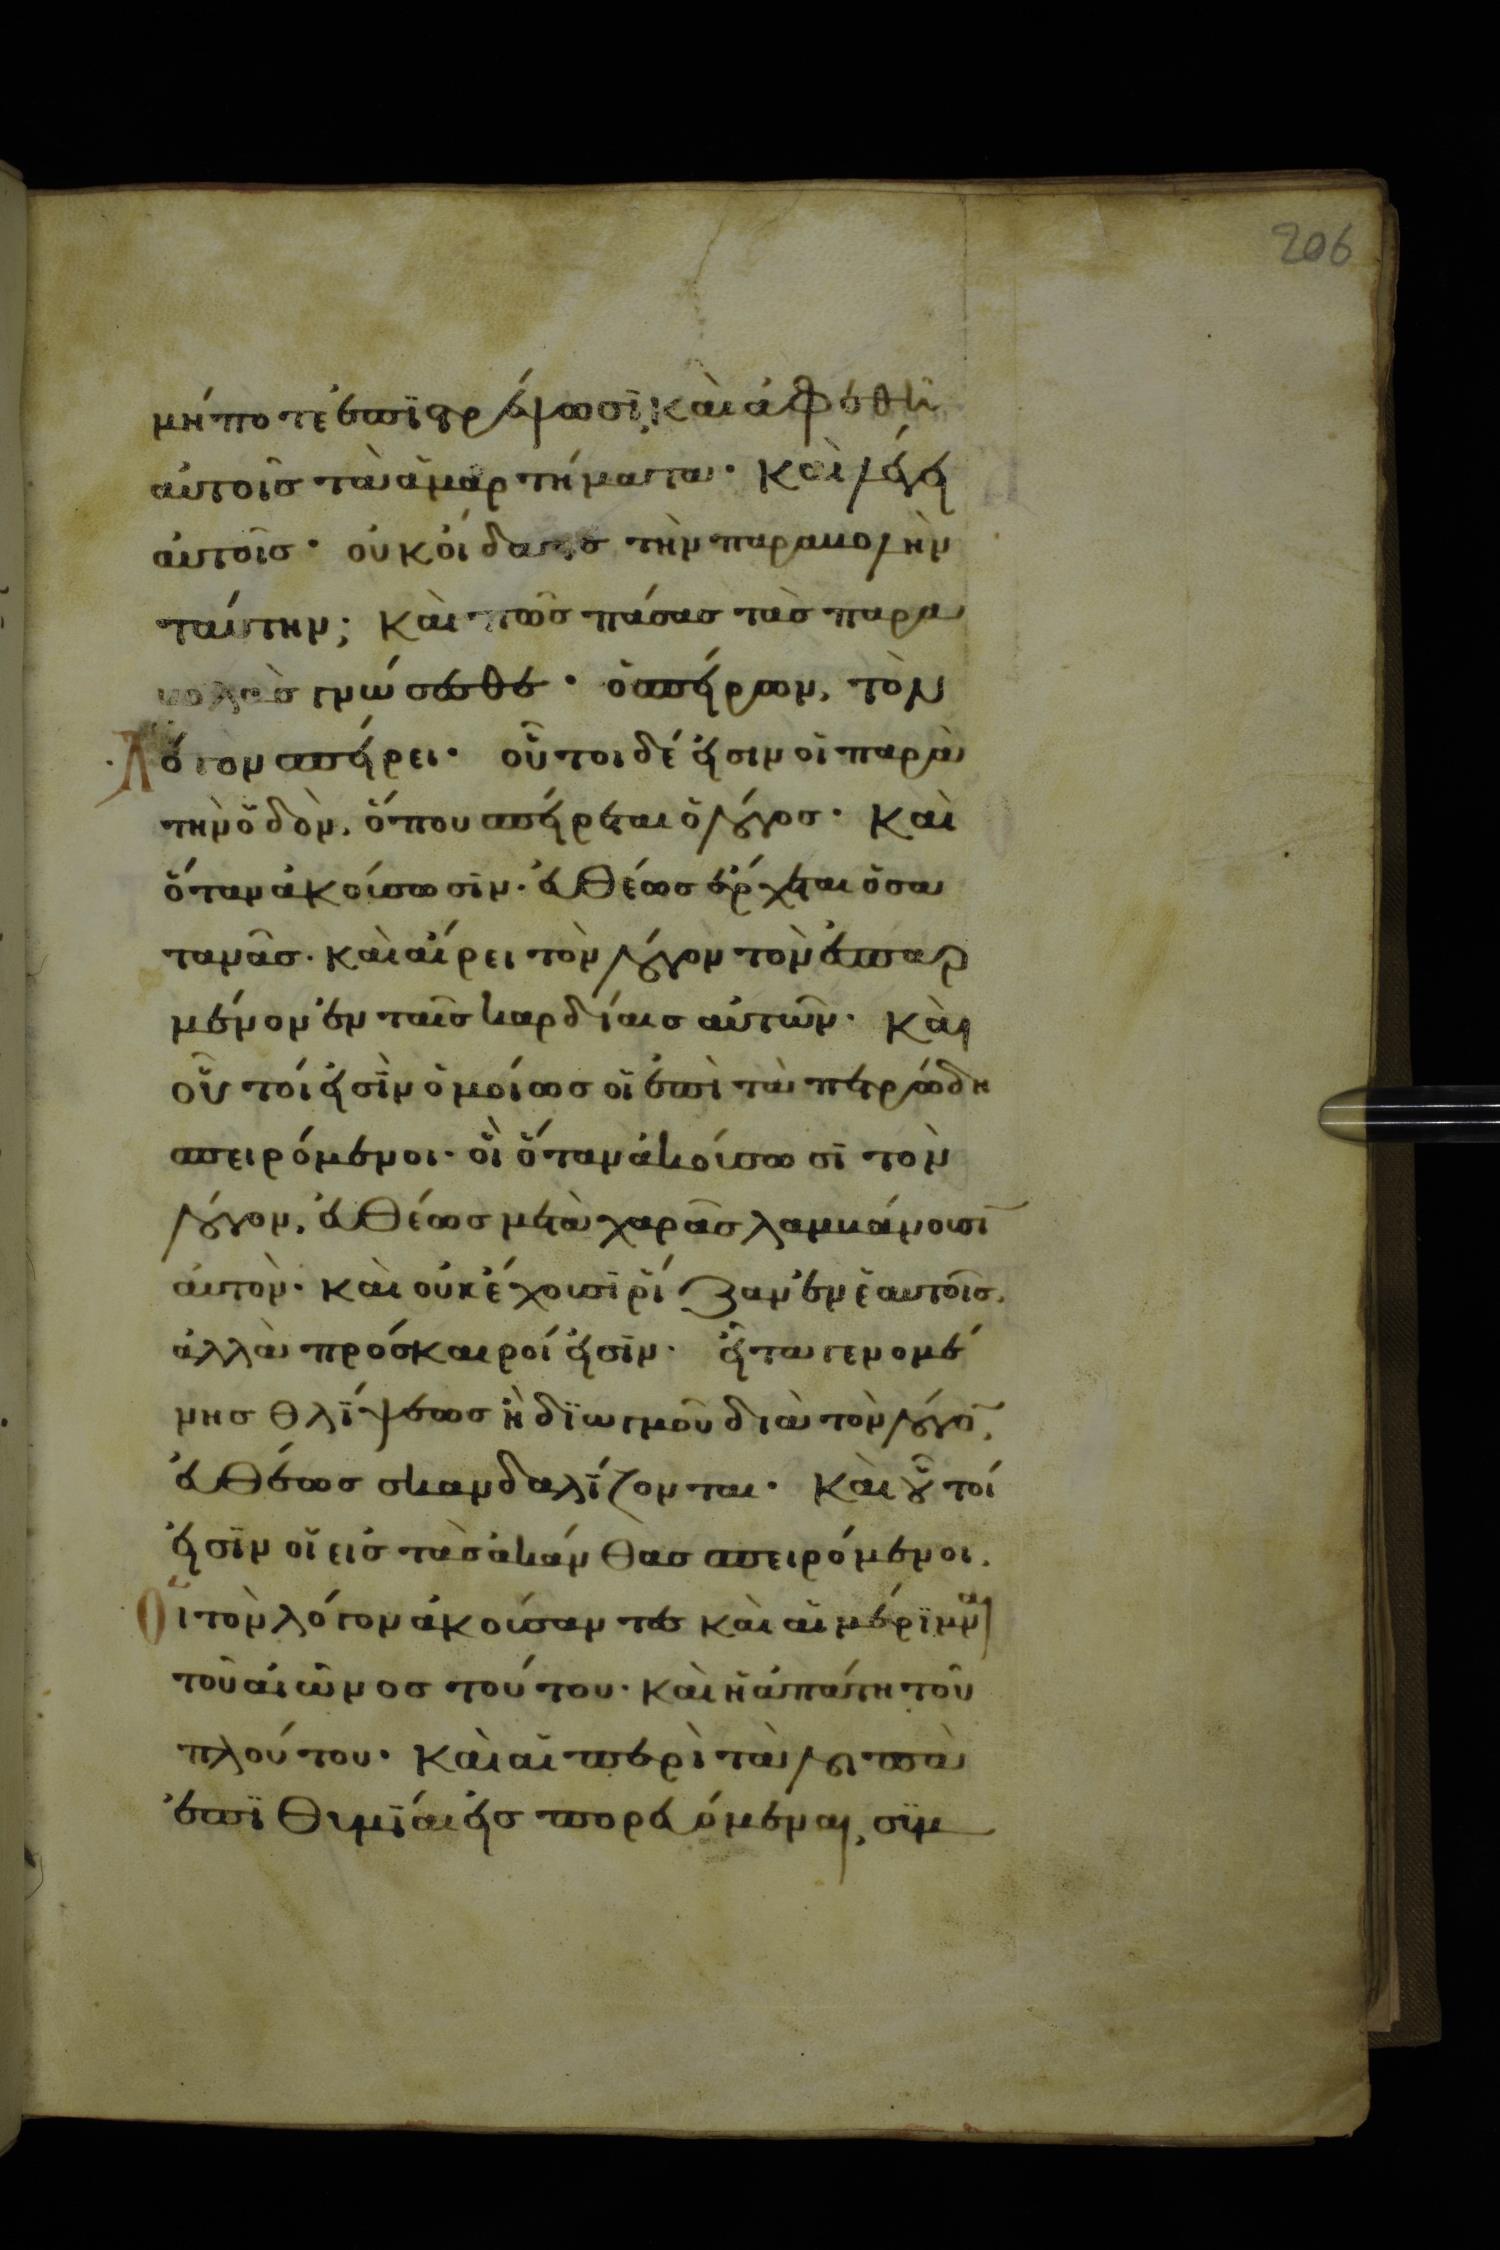 206
μήποτε ἐπϊστρέψωσϊ, καὶ ἀφεθῆ
αὐτοῖς τὰ ἁμαρτήματα· Καὶ λέγει
αὐτοῖς· οὐκ οἴδατε τὴν παραβολὴν
ταύτην; Καὶ πῶς πάσας τὰς παρα
βολὰς γνώσεσθε· ὁ σπείρων, τὸν
λόγον σπείρει· οὗτοι δέ εἰσιν οἱ παρὰ
τὴν ὁδὸν, ὅπου σπείρεται ὁ λόγος· Καὶ
ὅταν ἀκούσωσϊν· εὐθέως ἔρχεται ὁ σα
τανᾶς· καὶ αἴρει τὸν λόγον τὸν ἐσπαρ
μένον ἐν ταῖς καρδίαις αὐτῶν· Καὶ
οὗτοί εἰσϊν ὁμοίως οἱ ἐπὶ τὰ πετρώδη
σπειρόμενοι· οἳ ὅταν ἀκούσωσϊ τὸν
λόγον, εὐθέως μετὰ χαρᾶς λαμβάνουσϊ
αὐτὸν· καὶ οὐκ ἔχουσϊ ῥίζαν ἐν ἑαυτοῖς,
ἀλλὰ πρόσκαιροί εἰσϊν· εἶτα γενομέ
νης θλϊψεως ἢ δϊωγμοῦ διὰ τὸν λόγο̅,
εὐθέως σκανδαλϊζονται· Καὶ οὗτοί
εἰσϊν οἱ εἰς τὰς ἀκάνθας σπειρόμενοι,
Οἱ τὸν λόγον ἀκούσαντες καὶ αἱ μέρϊμναι
τοῦ αἰῶνος τούτου· καὶ ἡ ἀπάτη τοῦ
πλούτου· Καὶ αἱ περὶ τὰ λοιπὰ
ἐπϊθυμϊαι εἰσπορευόμεναι, συμ